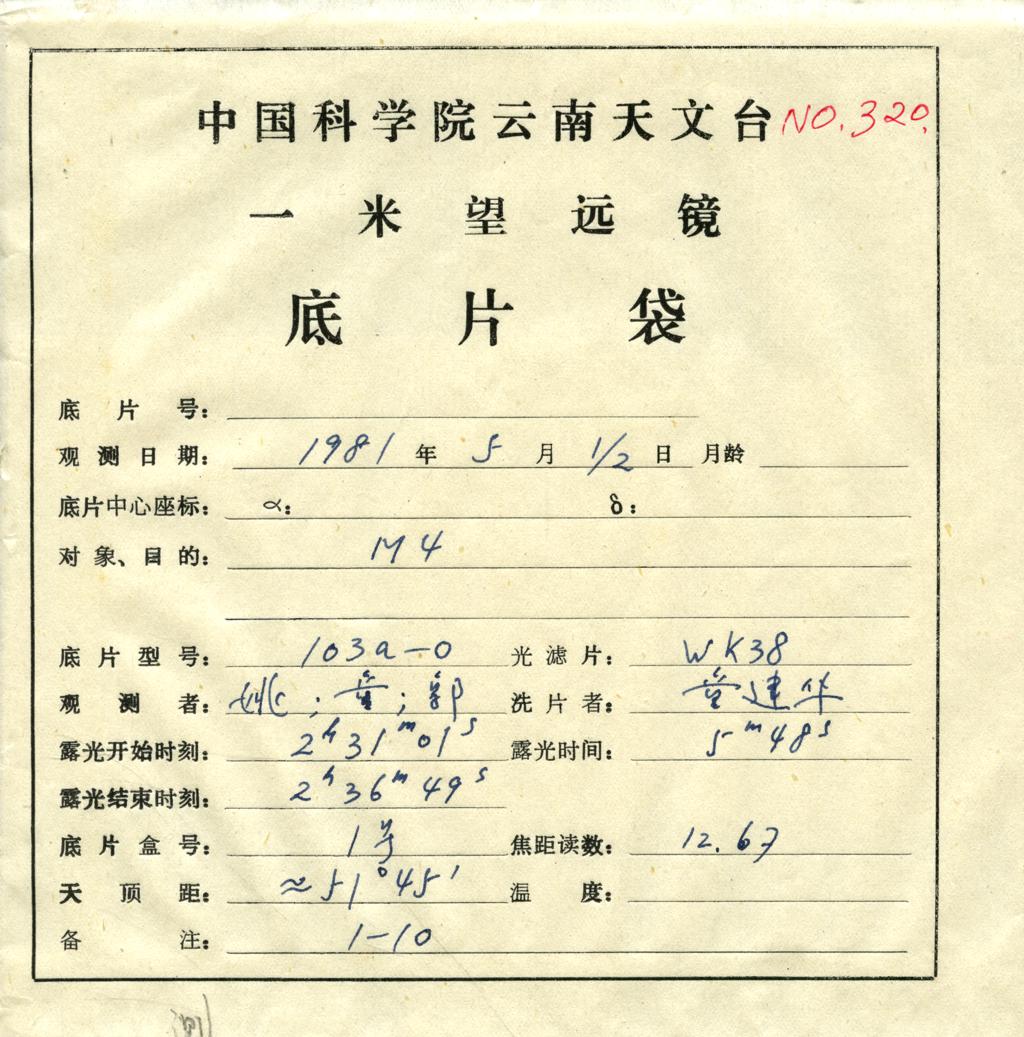 中国科学院云南天文台 NO.320.
一米望远镜
底片袋
底片号：
观测日期： 1981 年 5 月 1/2 日 月龄
底片中心座标： α： δ：
对象、目的： M4
底片型号： 103a-O 光滤片： WK38
观测者： 姚；童；郭 洗片者： 童建华
露光开始时刻： 2h31m01s 露光时间： 5m48s
露光结束时刻： 2h36m49s
底片盒号： 1号 焦距读数： 12.67
天顶距： ≈51°45′ 温度：
备注： 1-10
测